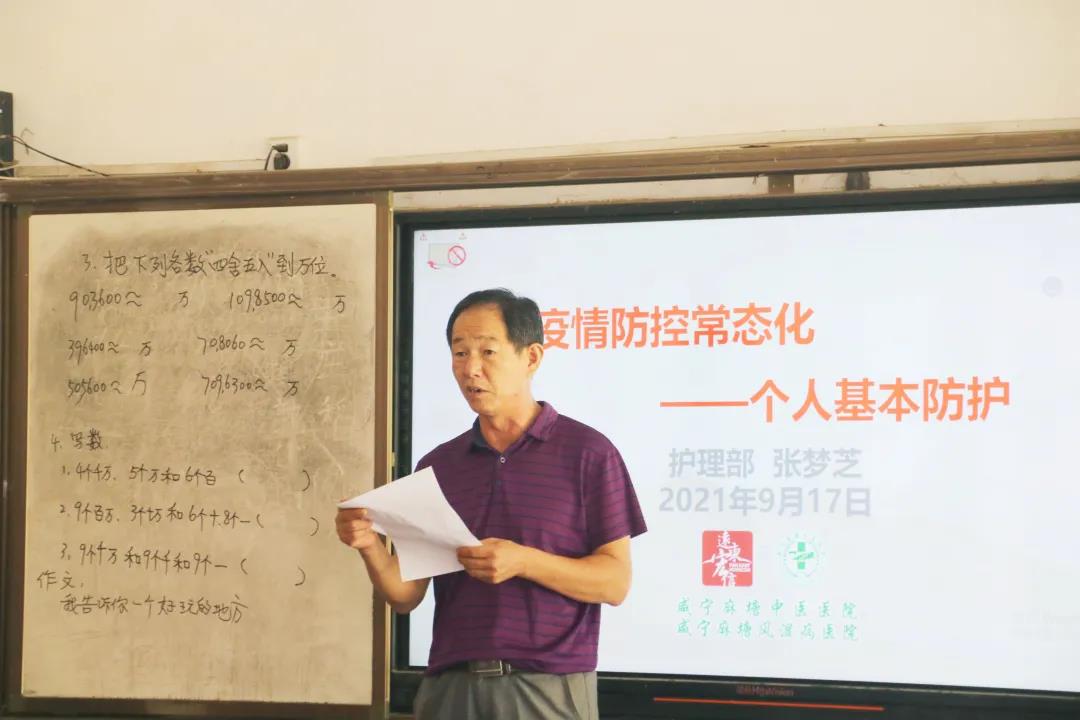 3. 把下列各数"四舍五入"到万位。
903600≈ 万 1098500≈ 万
396400≈ 万 708060≈ 万
505600≈ 万 7096300≈ 万
4. 写数.
1. 4个千万、5个万和6个百 ( )
2. 9个百万、3个十万和6个十.8个一( )
3. 9个十万和9个千和9个一 ( )
作文:
我告诉你一个好玩的地方
疫情防控常态化
——个人基本防护
护理部 张梦芝
2021年9月17日
远東
咸宁麻塘中医医院
咸宁麻塘风湿病医院